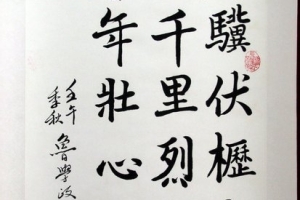 驥伏櫪
千里烈
年壯心
壬午
季秋
魯學政